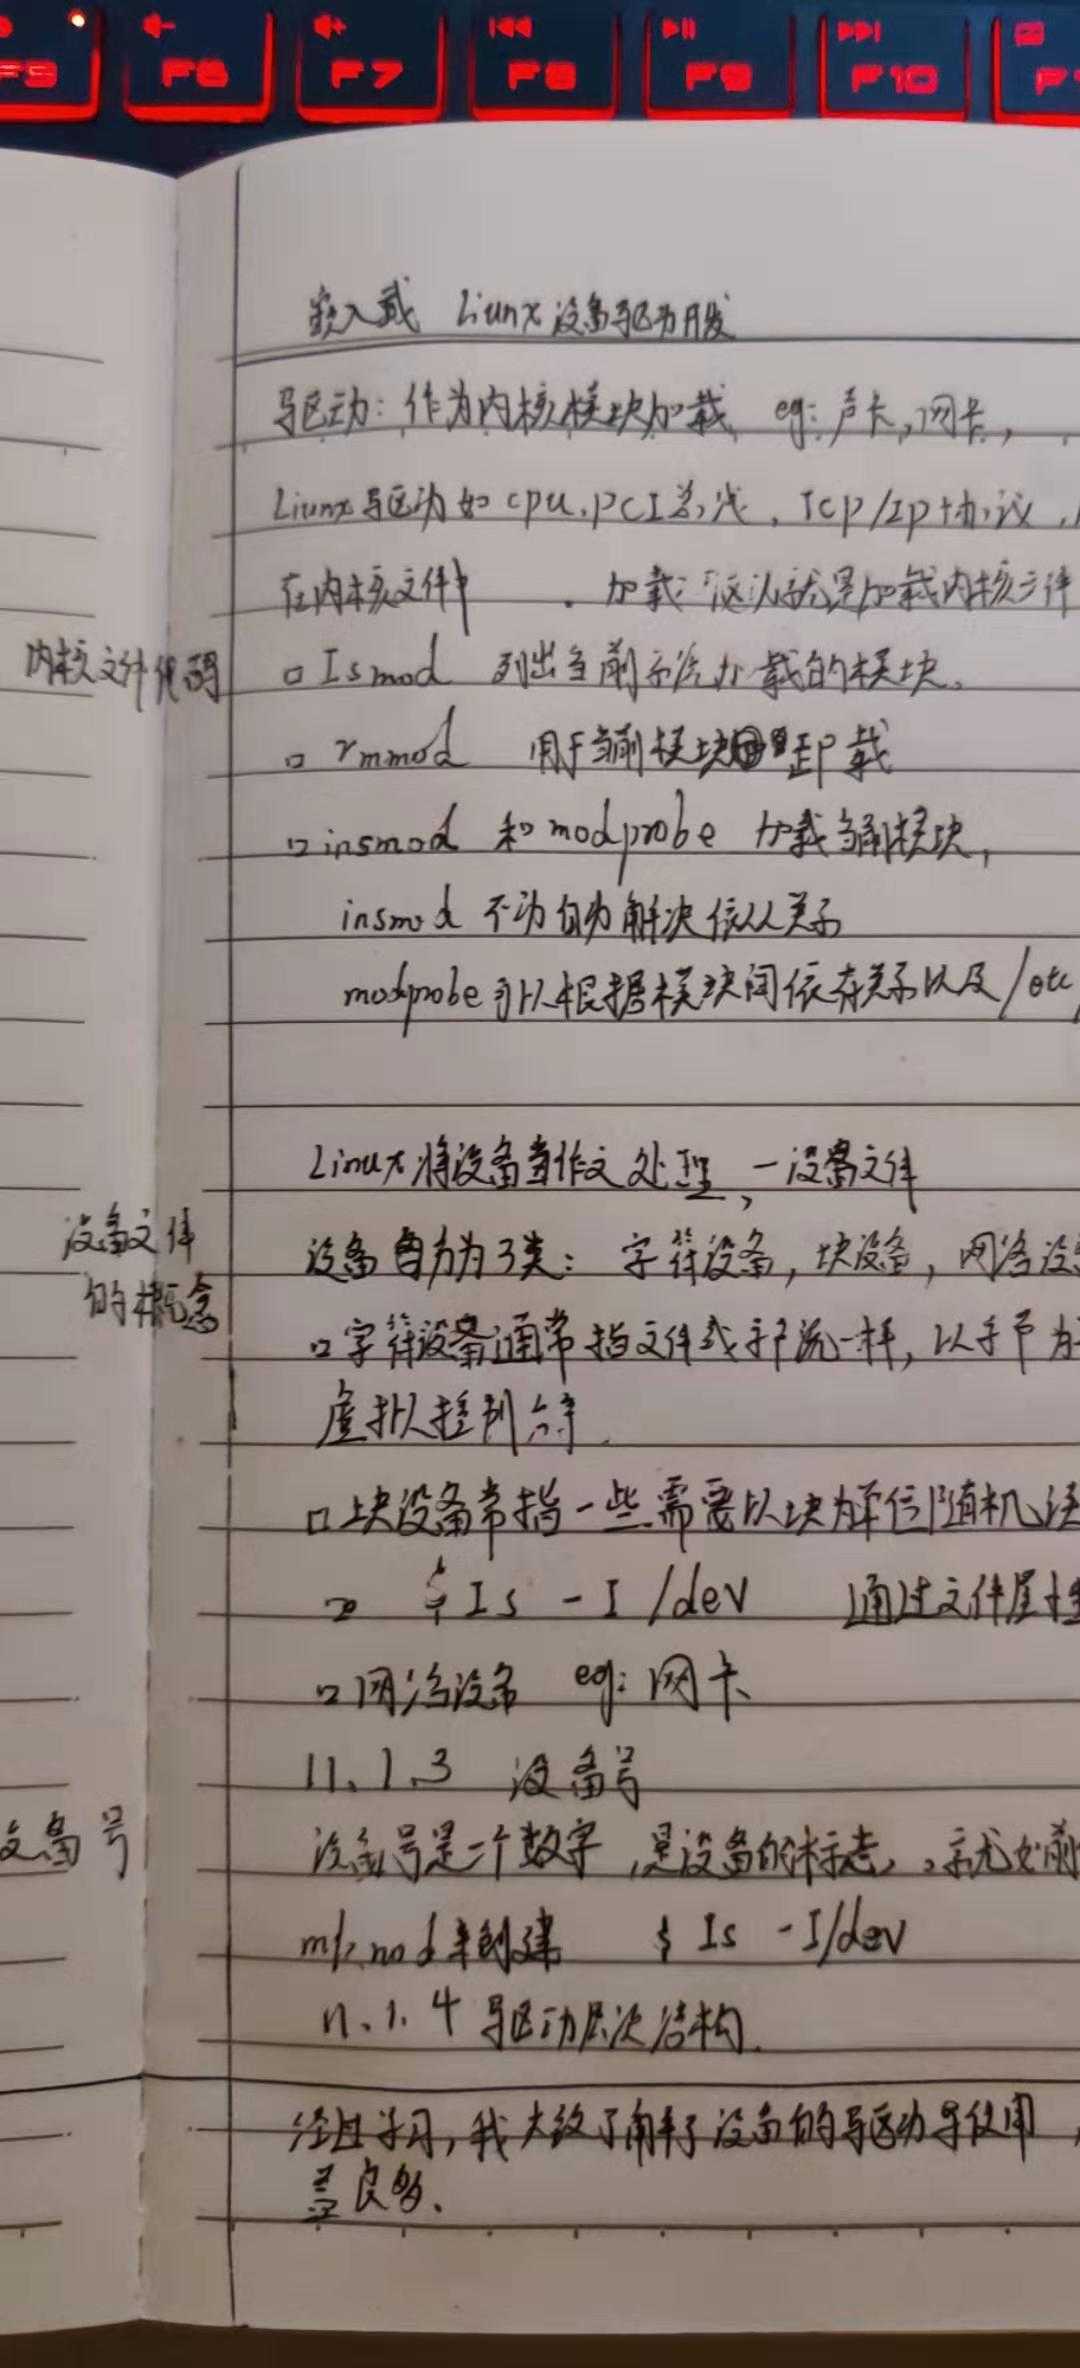 F6
F7
F8
F9
F10
嵌入式 Liunx 设备驱动开发
驱动：作为内核模块加载 eg：声卡，网卡，
Liunx驱动如cpu，PCI总线，Tcp/Ip协议，
在内核文件中 ．加载：默认就是加载内核文件
内核文件代码
□ Ismod 列出当前系统加载的模块。
□ rmmod 用于当前模块 卸载
□ insmod 和modprobe 加载当前模块，
insmod 不为自动解决依从关系
modprobe可以根据模块间依存关系以及/etc
Linux将设备当作文处理，一设备文件
设备文件
的概念
设备 分为3类：字符设备，块设备，网络设
□字符设备通常指文件或字节流一样，以字节为
虚拟控制台等．
□块设备常指一些需要以块为单位随机读
$ Is -I /dev 通过文件属性
□网络设备 eg：网卡
11、1.3 设备号
设备号
设备号是一个数字，是设备的标志，就如前
mknod来创建 $ Is -I/dev
11、1.4 驱动层次结构．
经过学习，我大致了解了设备的驱动与使用，
益良多．